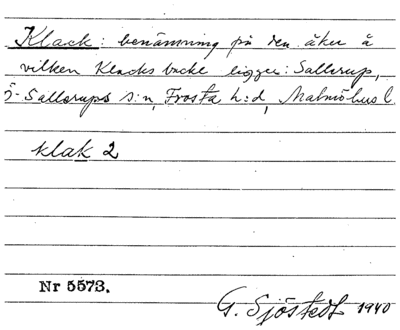 Klack: benämning på den åker å
vilken Klacks backe ligger: Sallerup,
Ö-Sallerups s:n, Frosta h:d, Malmöhus l.
klak 2
Nr 5573.
G. Sjöstedt 1940